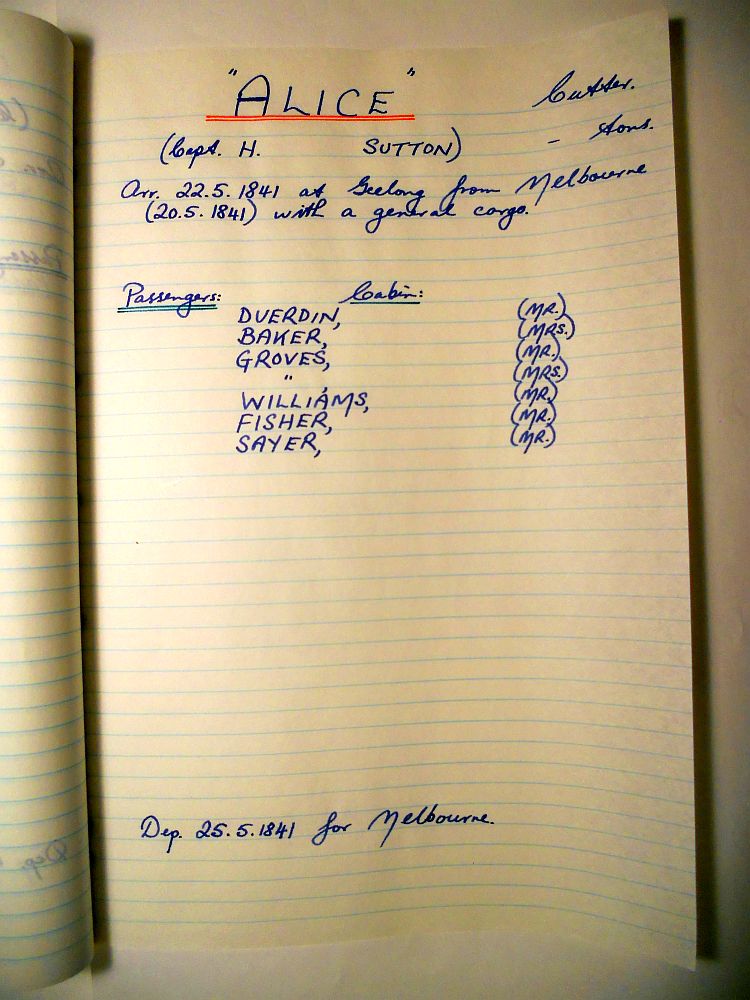 "ALICE" Cutter.
(Capt. H. SUTTON) - tons.
Arr. 22.5.1841 at Geelong from Melbourne
(20.5.1841) with a general cargo.
Passengers: Cabin:
DUERDIN, (MR.)
BAKER, (MRS.)
GROVES, (MR.)
" , (MRS.)
WILLIAMS, (MR.)
FISHER, (MR.)
SAYER, (MR.)
Dep. 25.5.1841 for Melbourne.